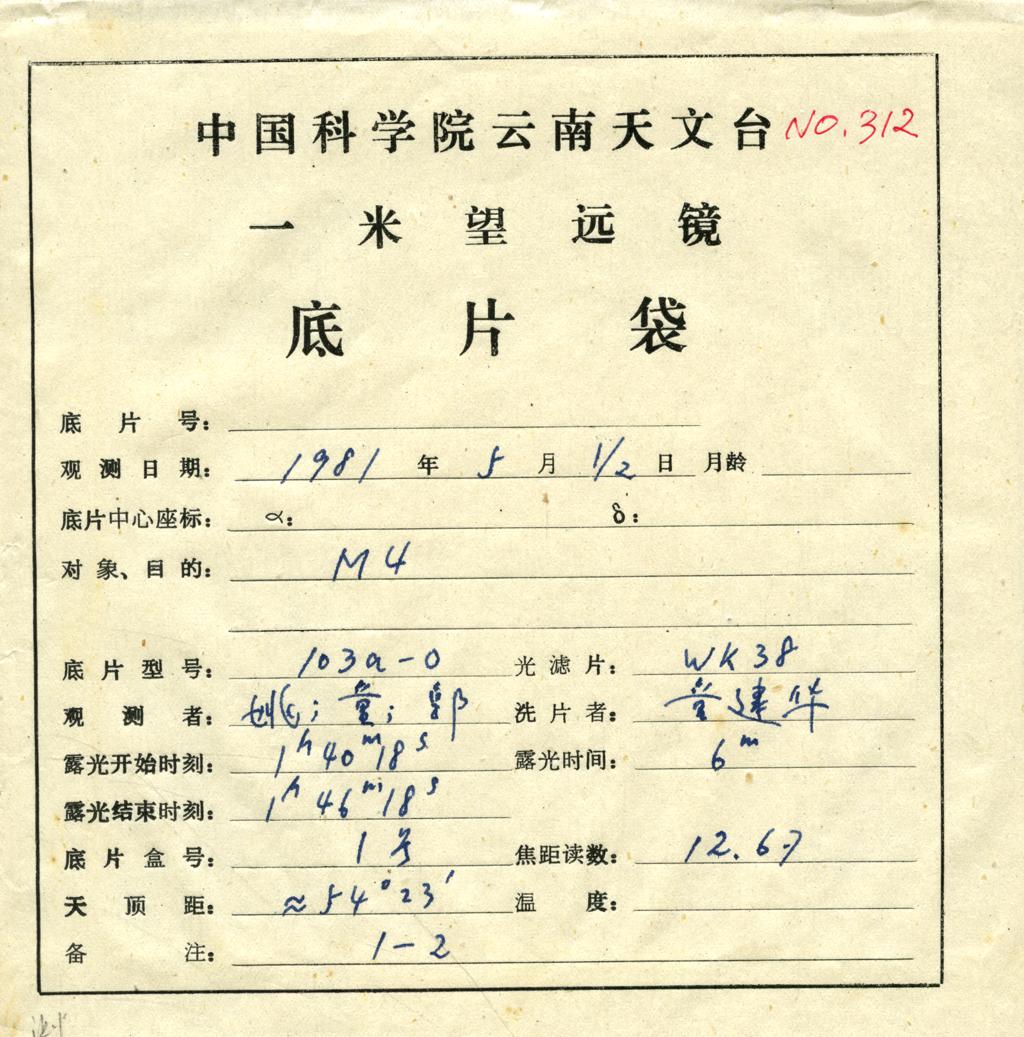 中国科学院云南天文台 NO.312
一米望远镜
底片袋
底片号:
观测日期: 1981 年 5 月 1/2 日 月龄
底片中心座标: α: δ:
对象、目的: M4
底片型号: 103a-O 光滤片: WK38
观测者: ; ; 郭 洗片者: 建华
露光开始时刻: 1h40m18s 露光时间: 6m
露光结束时刻: 1h46m18s
底片盒号: 1号 焦距读数: 12.67
天顶距: ≈54°23′ 温度:
备注: 1-2